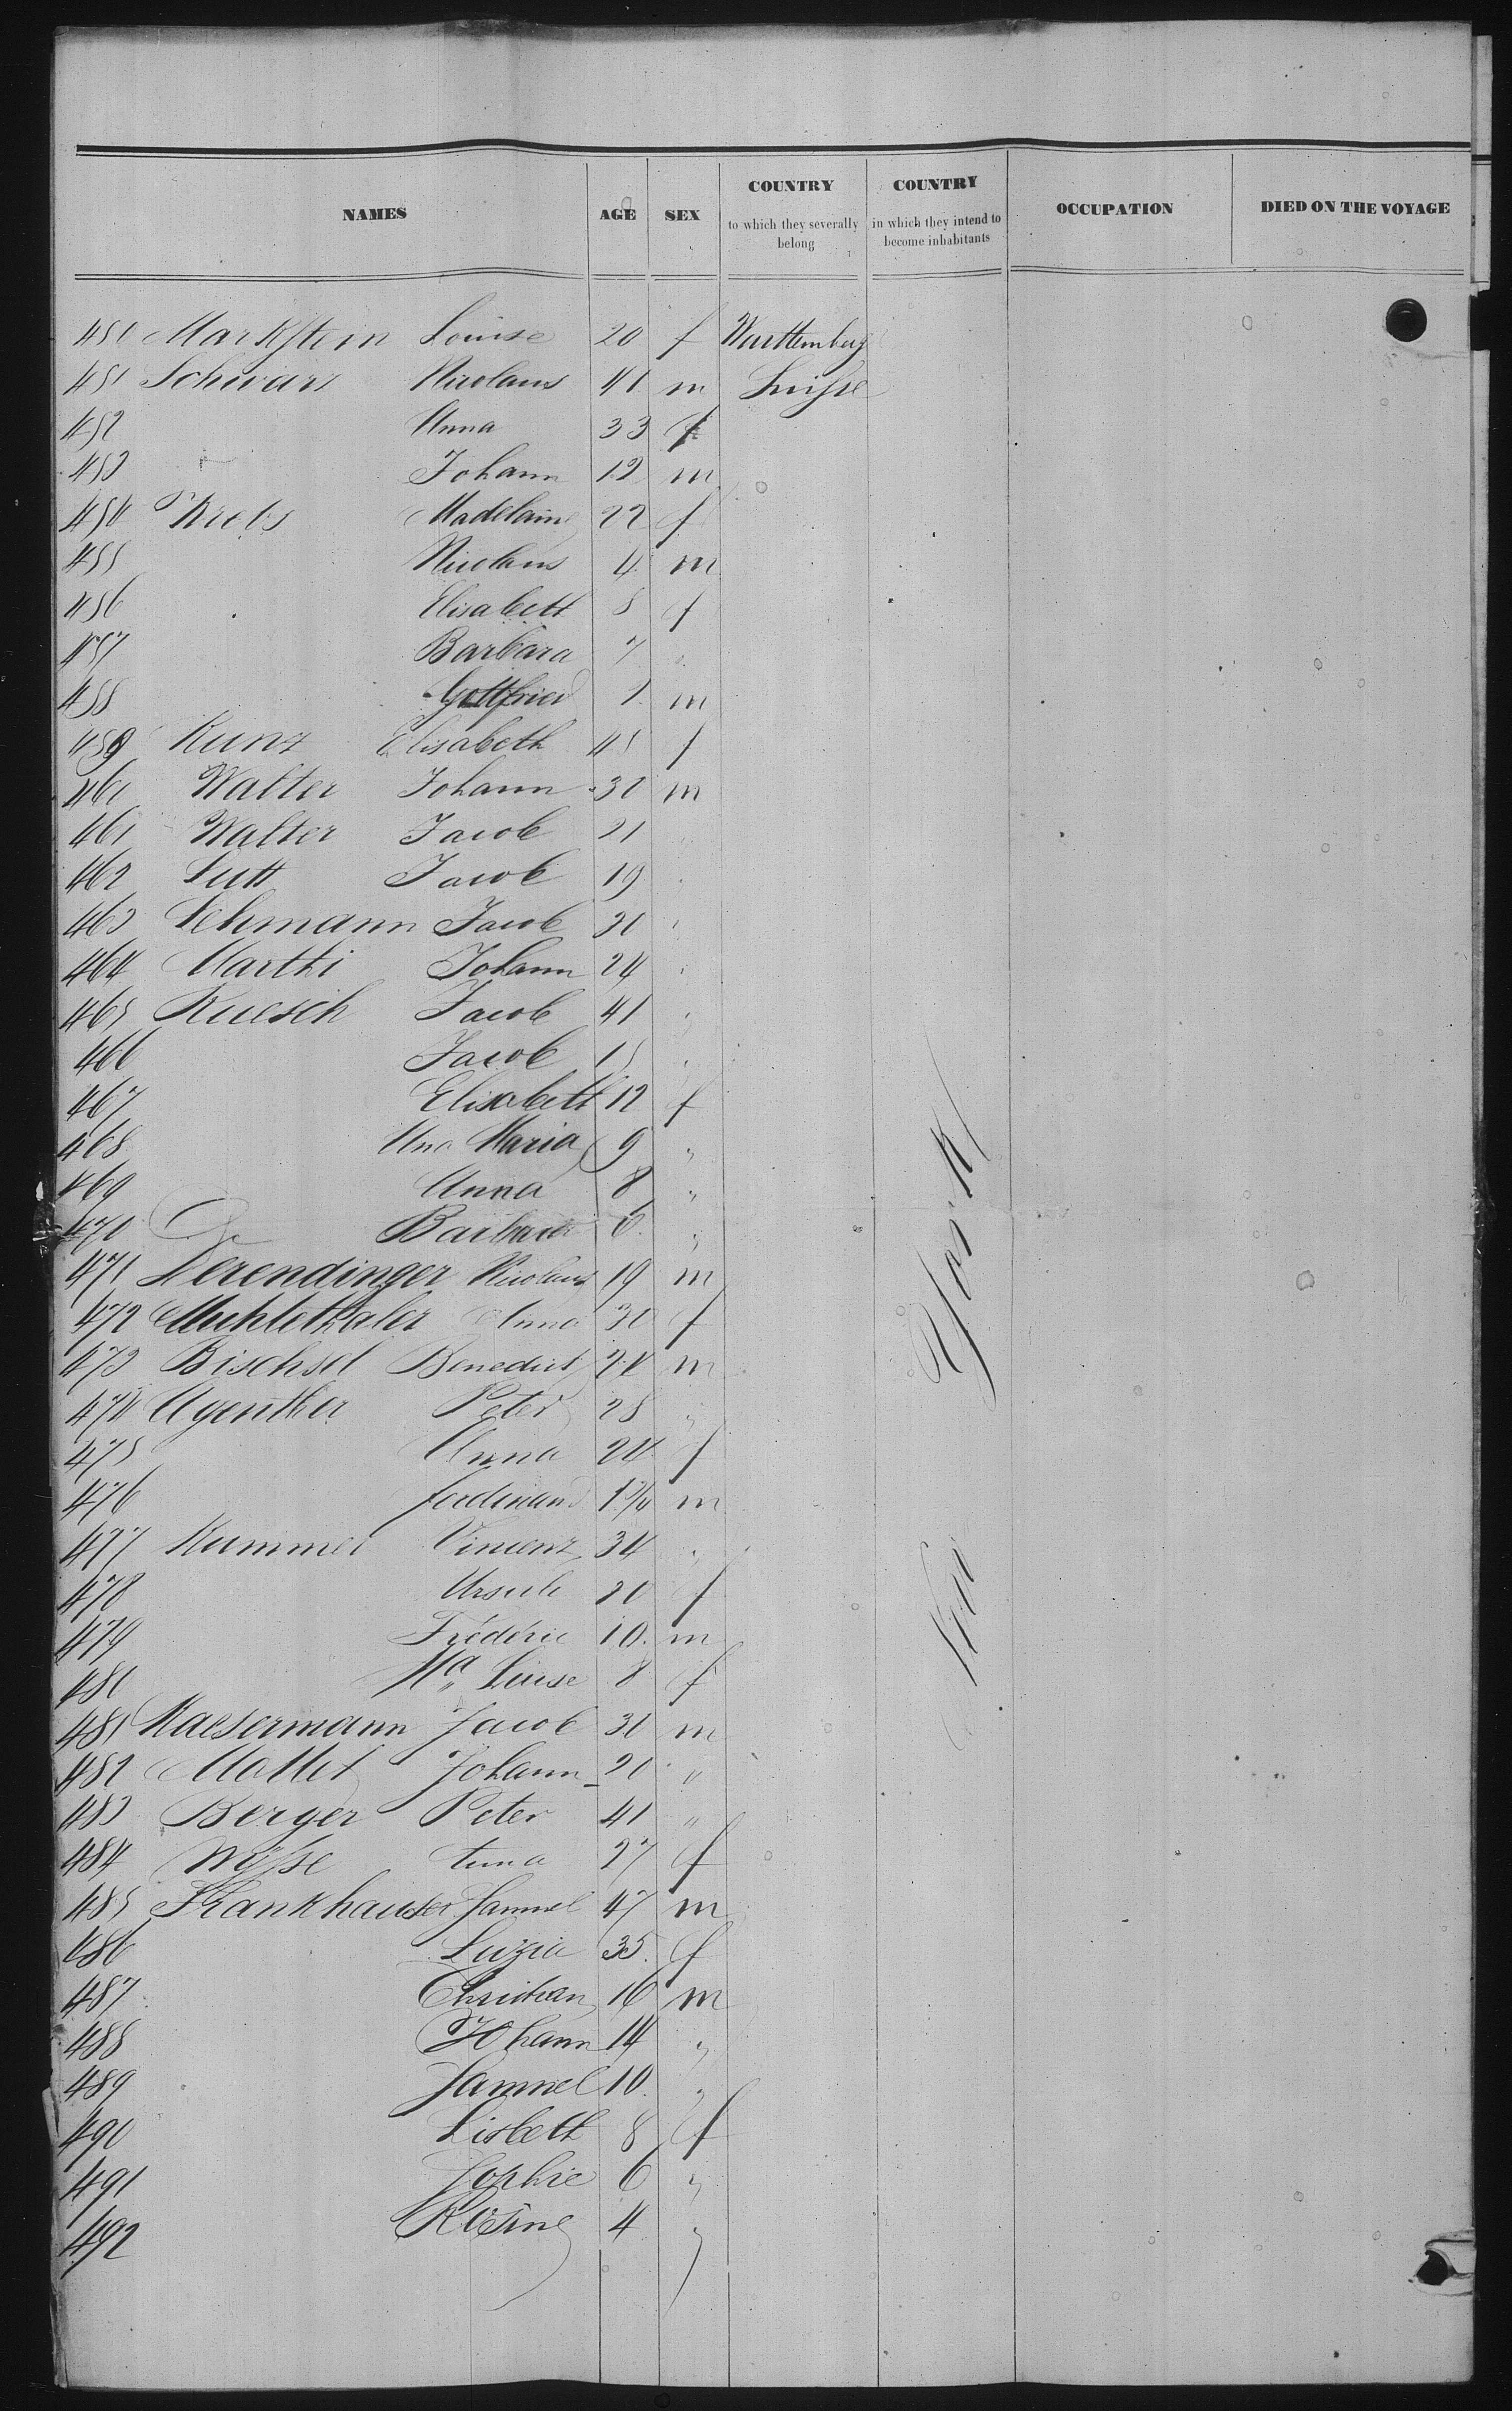 NAMES AGE SEX COUNTRY to which they severally belong COUNTRY in which they intend to become inhabitants OCCUPATION DIED ON THE VOYAGE
450 Markstein Louise 20 f Wurttemberg
451 Schwarz Nicolaus 41 m Suisse
452 Anna 33 f
453 Johann 12 m
454 Krebs Madelaine 22 f
455 Nicolaus 4 m
456 Elisabeth 5 f
457 Barbara 7
458 Gottfried 1 m
459 Kunz Elisabeth 45 f
460 Walter Johann 30 m
461 Walter Jacob 21
462 Lutt Jacob 19
463 Lehmann Jacob 30
464 Marthi Johann 24
465 Ruesch Jacob 41
466 Jacob 15
467 Elisabeth 12 f
468 Ana Maria 9 "
469 Anna 8 "
470 Barbara 6 "
471 Derendinger Nicolaus 19 m
472 Muhlethaler Anna 30 f
473 Bischsel Benedict 24 m
474 Agenther Peter 28 "
475 Anna 24 f
476 Ferdinand m
477 Kummer Vincenz 34 "
478 Ursule 20 f
479 Frédéric 10 m
480 Ma Luise 8 f
481 Kaesermann Jacob 30 m
482 Mollet Johann 20 "
483 Berger Peter 41 "
484 Wysse Anna 27 f
485 Frankhauser Samuel 47 m
486 Luzia 35 f
487 Christian 16 m
488 Johann 14 "
489 Samuel 10 "
490 Lisbeth 8 f
491 Sophie 6 "
492 Rosine 4 "
New York